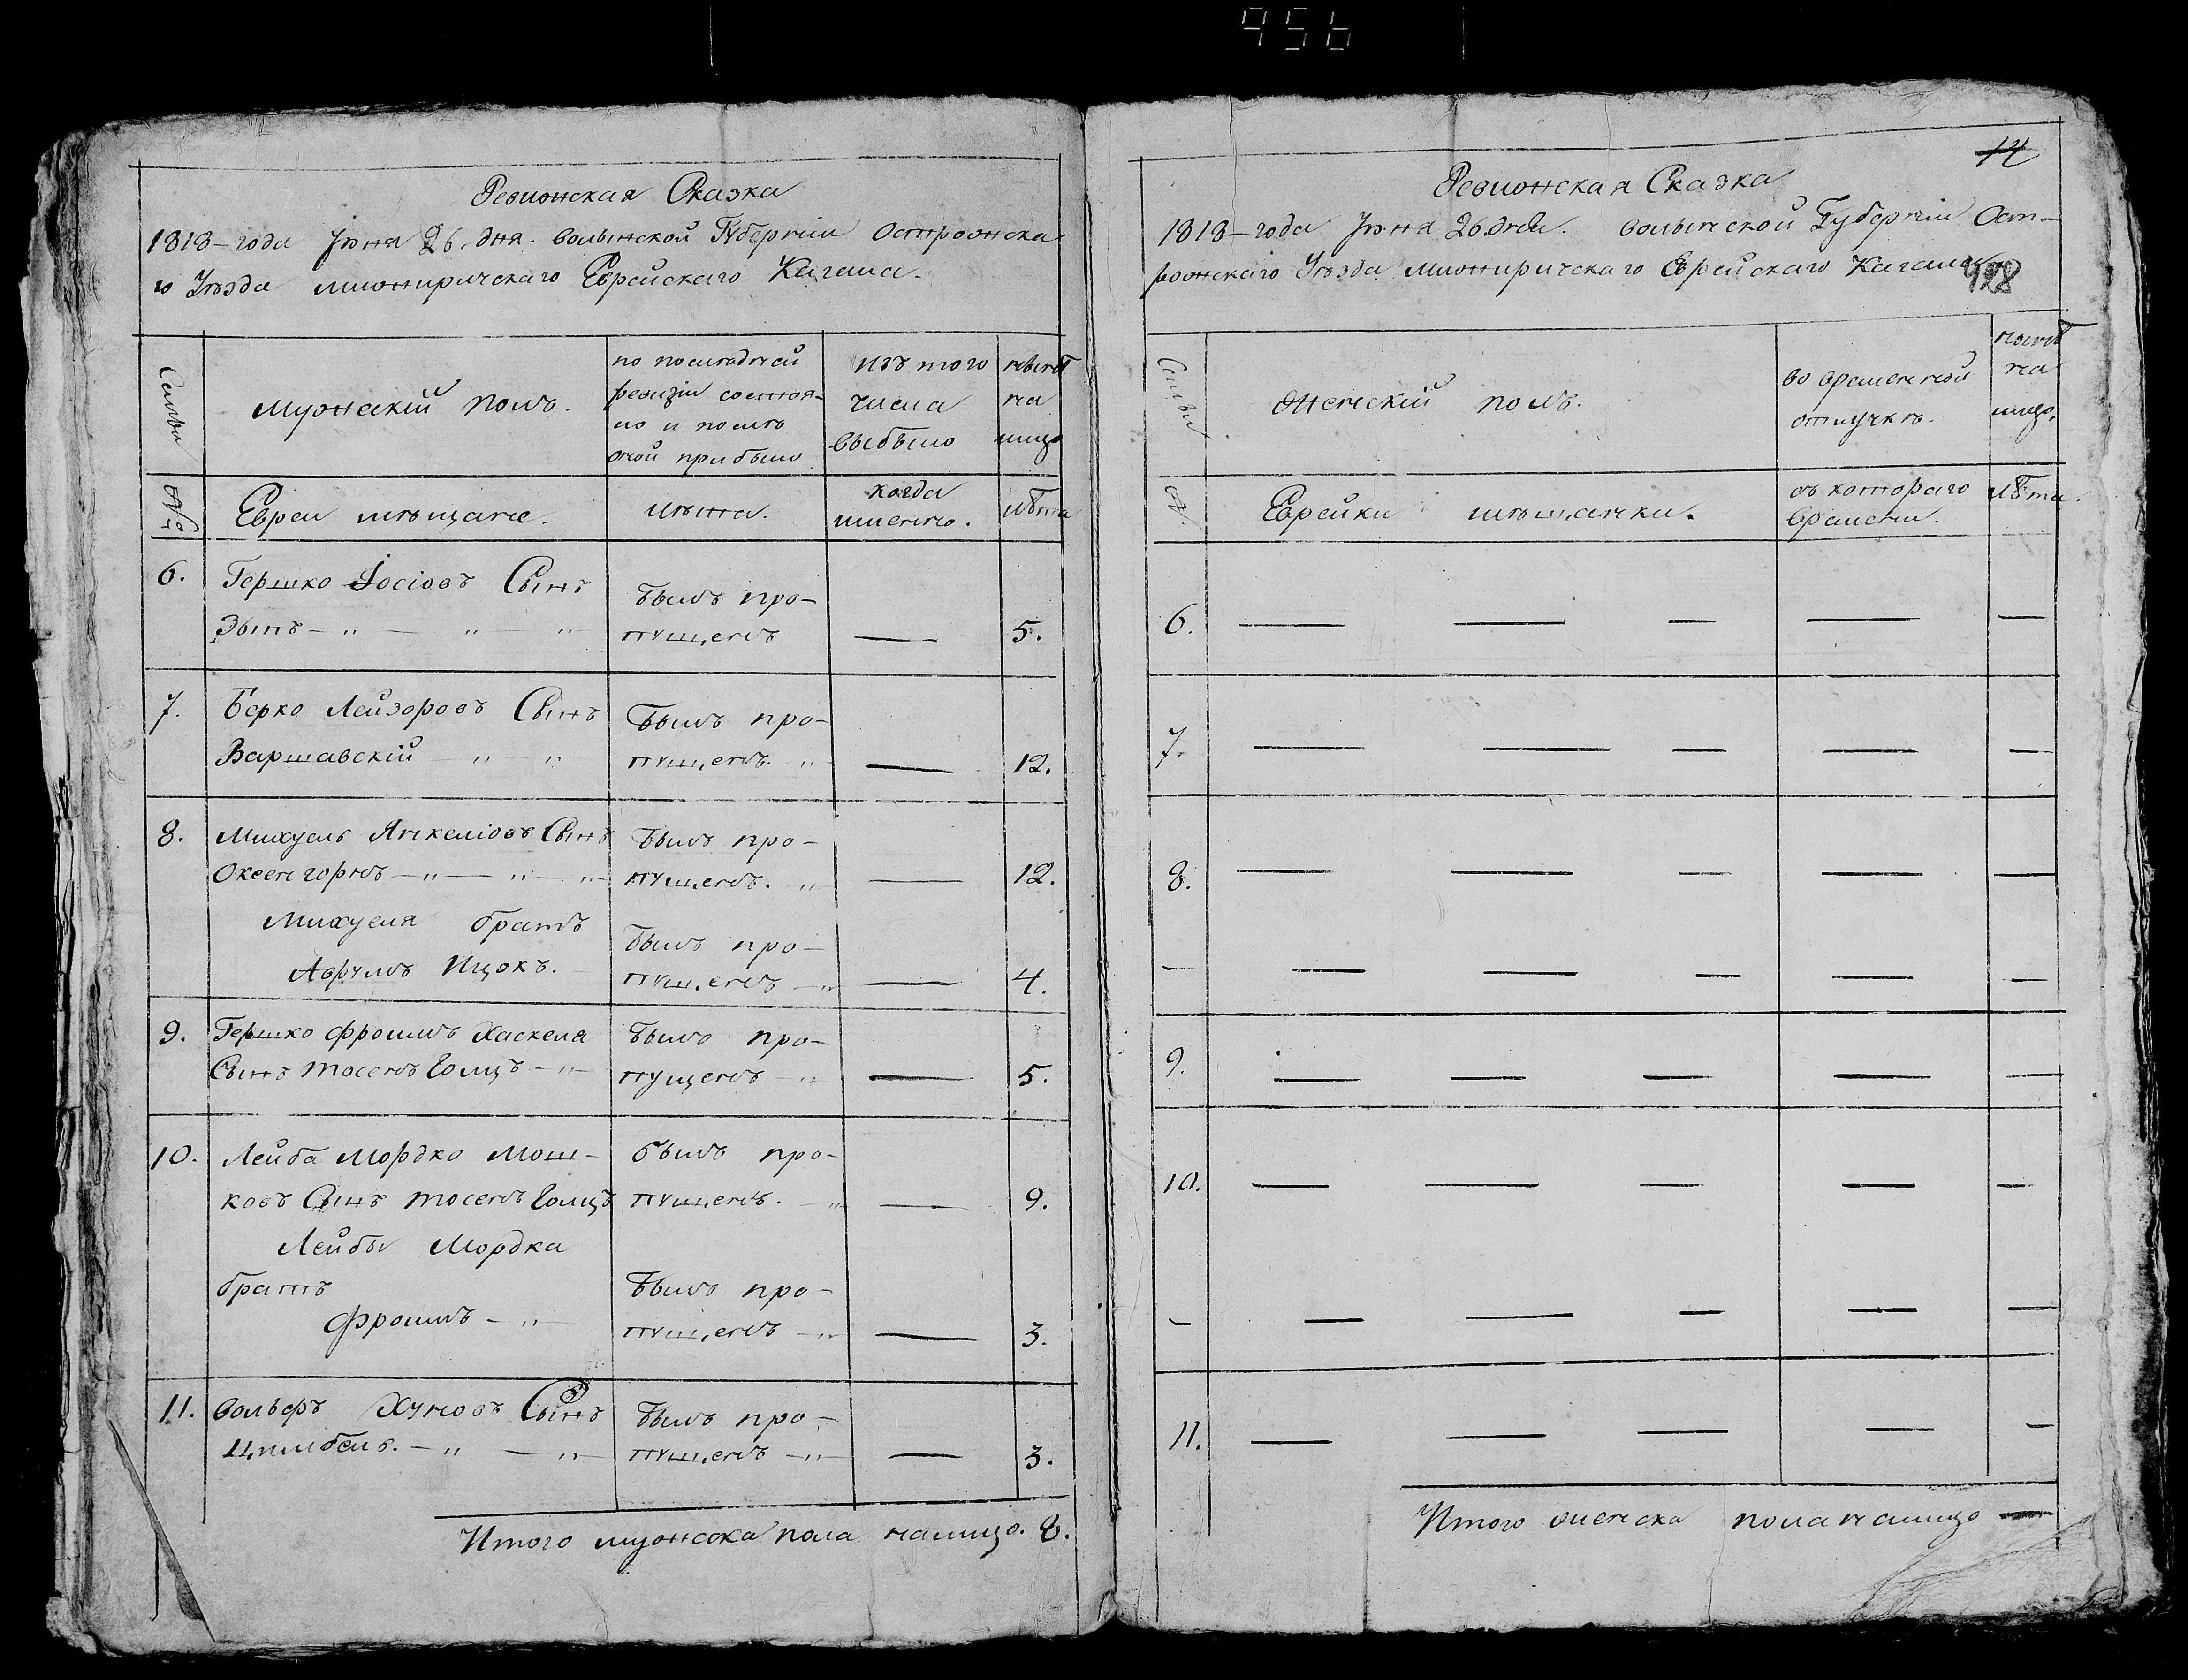 956
Ревижская Сказка
1818 – года Іюня 26. дня. Волынской Губерніи Острожска
го Уѣзда Мижиричскаго Еврейскаго Кагала.
Семьи
Мужескій полъ.
по последней
ревизіи состоя-
ло и послѣ
оной прибыло
изъ того
числа
выбыло
нынѣ
на
лицо
№
Евреи мѣщане.
лѣта.
когда
именно.
лѣта
6. Гершко Іосіовъ Сынъ
Зытъ – „ – „ – „
Былъ про-
пущенъ — 5.
7. Берко Лейзоровъ Сынъ
Варшавскій – „ – „
Былъ про-
пущенъ. „ — 12.
8. Михуель Янкеліовъ Сынъ
Оксенгорнъ – „ – „ – „
Былъ про-
пущенъ. „ — 12.
Михуеля братъ
Аврумъ Ицокъ.
Былъ про-
пущенъ – „ — 4.
9. Гершко Фроимъ Хаскеля
Сынъ Тосенъ Голцъ – „
Былъ про-
пущенъ – „ — 5.
10. Лейба Мордко Мош-
ковъ Сынъ Тосенъ Голцъ
былъ про-
пущенъ. – „ — 9.
Лейбы Мордка
братъ
Фроимъ – „
Былъ про-
пущенъ – „ — 3.
11. Вольфъ Хуновъ Сынъ
Цимбель. – „ – „
Былъ про-
пущенъ – „ — 3.
Итого мужска пола налицо. 8.
14
Ревижская Сказка
1818 – года Іюня 26. дня. Волынской Губерніи Ост-
рожскаго Уѣзда Мижиричскаго Еврейскаго Кагала
928
Семьи
Женскій полъ.
во временной
отлучкѣ.
нынѣ
на
лицо.
№.
Еврейки мѣщанки.
съ котораго
времени.
лѣта.
6. — — — — —
7. — — — — —
8. — — — — —
— — — — — —
9. — — — — —
10. — — — — —
— — — — — —
11. — — — — —
Итого женска пола налицо —